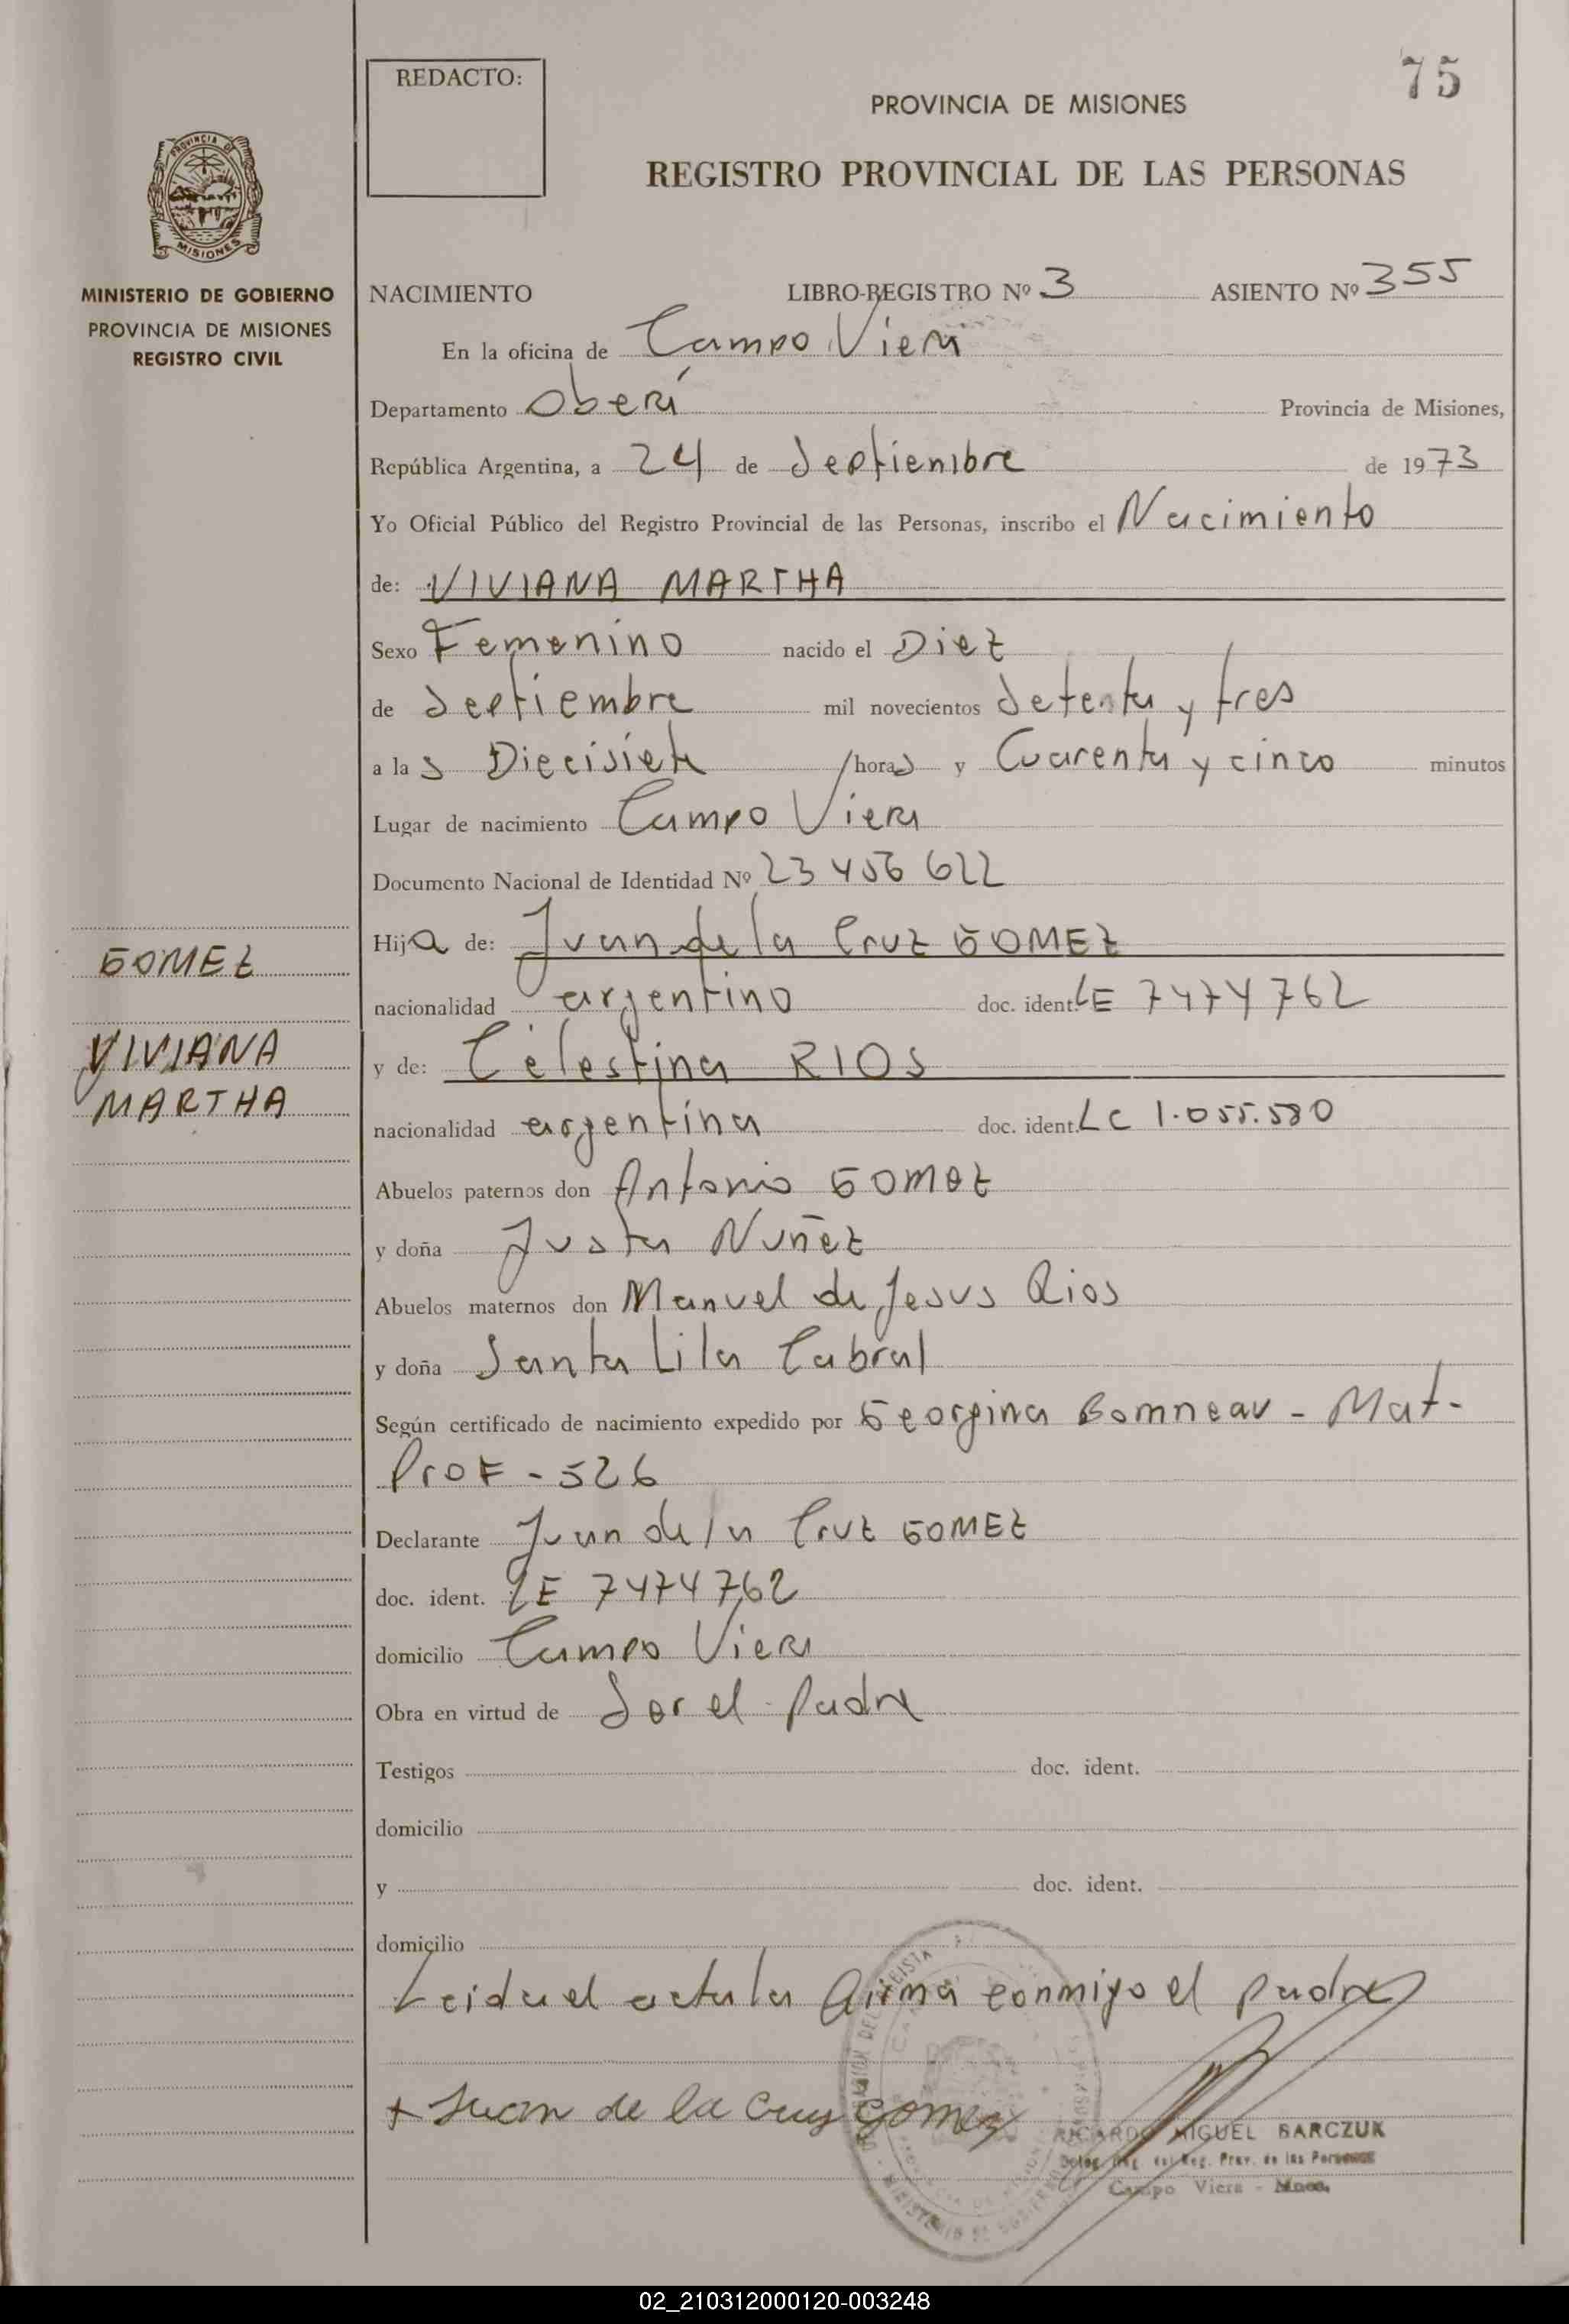 75
REDACTO:
PROVINCIA DE MISIONES
REGISTRO PROVINCIAL DE LAS PERSONAS
PROVINCIA DE
MISIONES
MINISTERIO DE GOBIERNO
PROVINCIA DE MISIONES
REGISTRO CIVIL
NACIMIENTO LIBRO-REGISTRO Nº 3 ASIENTO Nº 355
En la oficina de Campo Viera
Departamento Oberá Provincia de Misiones,
República Argentina, a 24 de Septiembre de 1973
Yo Oficial Público del Registro Provincial de las Personas, inscribo el Nacimiento
de: VIVIANA MARTHA
Sexo Femenino nacido el Diez
de Septiembre mil novecientos Setenta y tres
a las Diecisiete /horas y Cuarenta y cinco minutos
Lugar de nacimiento Campo Viera
Documento Nacional de Identidad Nº 23 456 622
GOMEZ
VIVIANA
MARTHA
Hija de: Juan de la Cruz GOMEZ
nacionalidad argentino doc. ident. LE 7474762
y de: Celestina RIOS
nacionalidad argentina doc. ident. LC 1.055.580
Abuelos paternos don Antonio GOMEZ
y doña Justa Nuñez
Abuelos maternos don Manuel de Jesus Rios
y doña Santa Lila Cabral
Según certificado de nacimiento expedido por Georgina Bomneau - Mat-
Prof - 526
Declarante Juan de la Cruz GOMEZ
doc. ident. LE 7474762
domicilio Campo Viera
Obra en virtud de Ser el Padre
Testigos doc. ident.
domicilio
y doc. ident.
domicilio
Leida el acta la firma conmigo el padre
+ Juan de la Cruz Gomez
RICARDO MIGUEL BARCZUK
Deleg. Reg. del Reg. Prov. de las Personas
Campo Viera - Mnes.
02_210312000120-003248